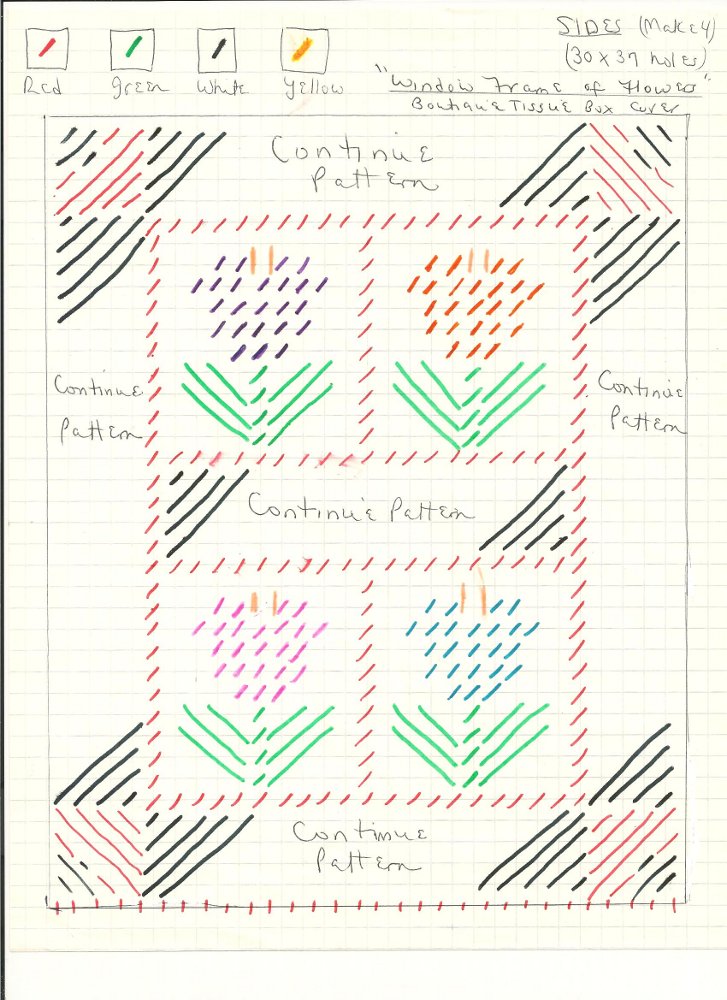 SIDES (Make 4)
(30 x 37 holes)
Red Green White Yellow
"Window Frame of Flowers"
Boutique Tissue Box Cover
Continue
Pattern
Continue
Pattern
Continue
Pattern
Continue Pattern
Continue
Pattern